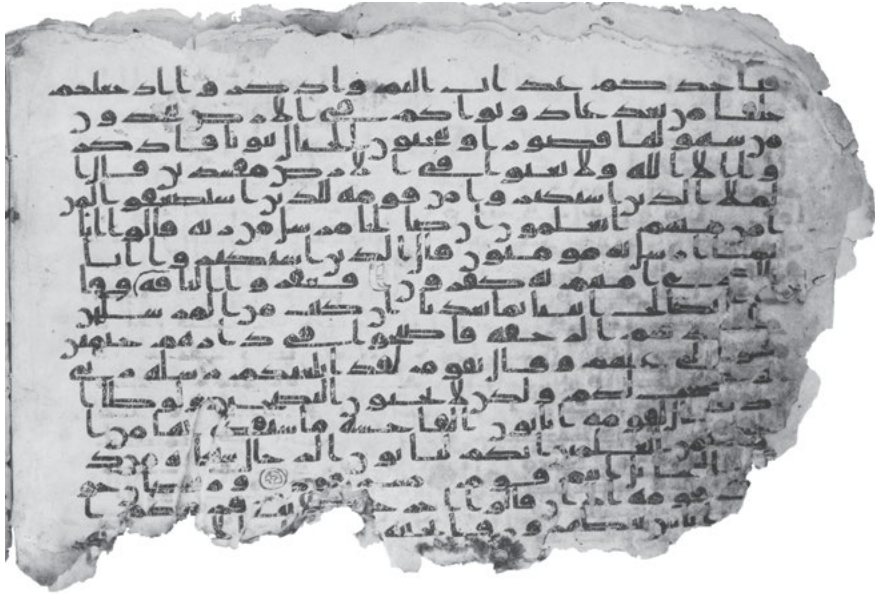 فياخذكم عذاب اليم واذكروا اذ جعلكم
خلفا من بعد عاد وبواكم في الارض تتخذون
من سهولها قصورا وتنحتون الجبال بيوتا فاذكر
وا الا الله ولا تعثوا في الارض مفسدين قال ا
لملا الذين استكبروا من قومه للذين استضعفوا لمن
امن منهم اتعلمون ان صلحا مرسل من ربه قالوا انا
بما ارسل به مومنون قال الذين استكبروا انا
بالذي امنتم به كفرون فعقروا الناقه وقا
يصلح ايتنا بما تعدنا ان كنت من المرسلين
فاخذتهم الرجفه فاصبحوا في دارهم جثمين
فتولى عنهم وقال يقوم لقد ابلغتكم رسله ربي
ونصحت لكم ولكن لا تحبون النصحين ولوطا ا
ذ قال لقومه اتاتون الفاحشه ما سبقكم بها من ا
حد من العلمين انكم لتاتون الرجال شهوه من د
ون النسا بل انتم قوم مسرفون وما كان جو
اب قومه الا ان قالوا اخرجوهم من قريتكم ا
اناس يتطهرون فانجينه الا